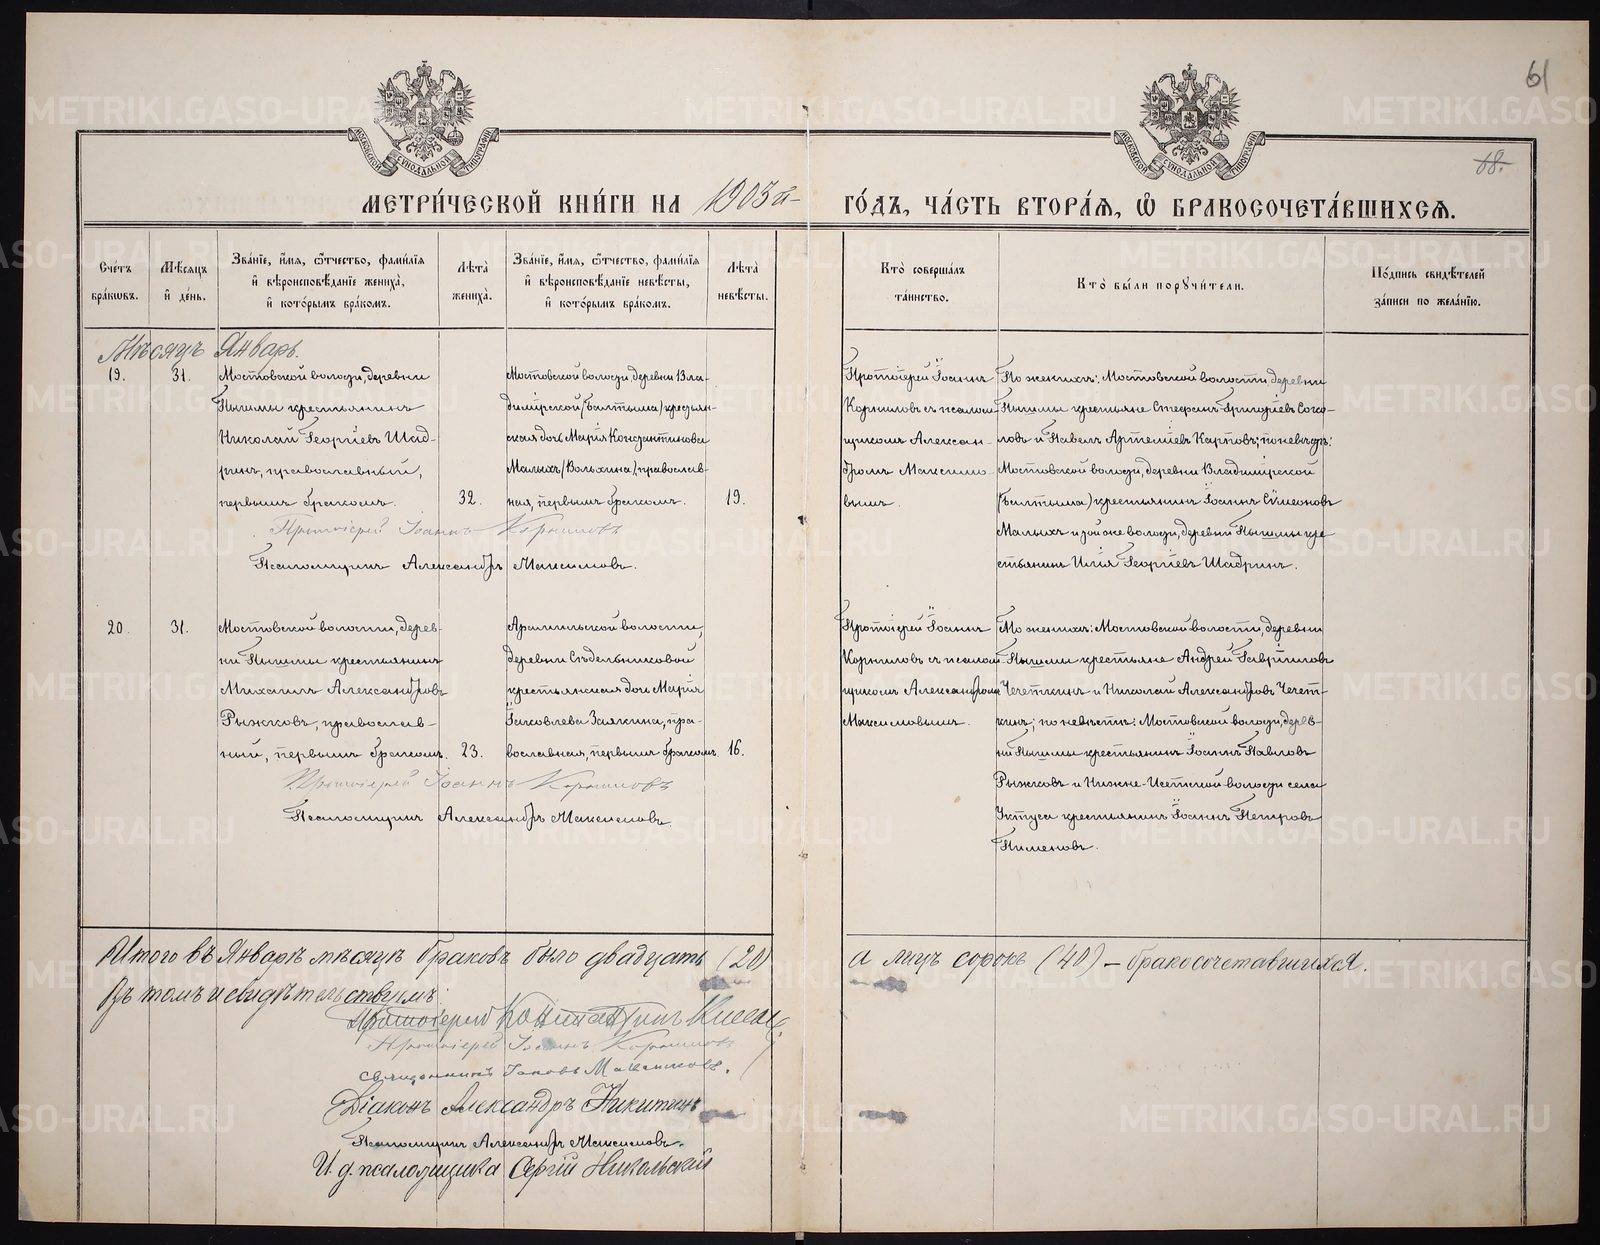 61
68.
МЕТРИ́ЧЕСКОЙ КНИ́ГИ НА 1903й
ГО́ДЪ, ЧА́СТЬ ВТОРА́Я, Ѡ БРАКОСОЧЕТА́ВШИХСЯ.
Сче́тъ бра́ковъ.
Мѣ́сяцъ и́ де́нь.
Зва́нїе, и́мя, ѻ́тчество, фами́лїя и́ вѣроисповѣ́данїе жениха̀, и́ кото́рымъ бра́комъ.
Лѣта̀ жениха̀.
Зва́нїе, и́мя, ѻ́тчество, фами́лїя и́ вѣроисповѣ́данїе невѣ́сты, и́ кото́рымъ бра́комъ.
Лѣта̀ невѣ́сты.
Кто̀ соверша́лъ та́инство.
Кто̀ бы́ли порꙋчи́тели.
По́дпись свидѣ́телей за́писи по жела́нїю.
Мѣсяцъ Январь.
19.
31.
Мостовской волости, деревни
Пышмы крестьянинъ
Николай Георгіевъ Шад-
ринъ, православный,
первымъ бракомъ.
32.
Мостовской волости, деревни Вла-
димірской (Балтыма) крестьян-
ская дочь Марія Константинова
Малыхъ (Вольхина), православ-
ная, первымъ бракомъ.
19.
Протоіерей Іоаннъ
Корниловъ съ псалом-
щикомъ Алексан-
дромъ Максимо-
вымъ.
По женихѣ: Мостовской волости, деревни
Пышмы крестьяне Стефанъ Григоріевъ Соко-
ловъ и Павелъ Артеміевъ Карповъ; по невѣстѣ:
Мостовской волости, деревни Владимірской
(Балтыма) крестьянинъ Іоаннъ Сѵмеоновъ
Малыхъ и той же волости, деревни Пышмы кре
стьянинъ Илія Георгіевъ Шадринъ.
Протоіерей Іоаннъ Корниловъ
Псаломщикъ Александръ Максимовъ.
20.
31.
Мостовской волости, дерев-
ни Пышмы крестьянинъ
Михаилъ Александровъ
Рыжковъ, православ-
ный, первымъ бракомъ.
23.
Арамильской волости,
деревни Сѣдельниковой
крестьянская дочь Марія
Іаковлева Заякина, пра-
вославная, первымъ бракомъ.
16.
Протоіерей Іоаннъ
Корниловъ съ псалом-
щикомъ Александромъ
Максимовымъ.
По женихѣ: Мостовской волости, деревни
Пышмы крестьяне Андрей Гавріиловъ
Чечеткинъ и Николай Александровъ Чечет-
кинъ; по невѣстѣ: Мостовской волости, дерев-
ни Пышмы крестьянинъ Іоаннъ Павловъ
Рыжковъ и Нижне-Исетской волости села
Уктуса крестьянинъ Іоаннъ Петровъ
Пименовъ.
Протоіерей Іоаннъ Корниловъ
Псаломщикъ Александръ Максимовъ.
Итого въ Январѣ мѣсяцѣ браковъ было двадцать (20)
а лицъ сорокъ (40) – бракосочетавшихся.
Въ томъ и свидѣтельствуемъ:
Протоіерей Константинъ
Протоіерей Іоаннъ Корниловъ
Священникъ Іаковъ
Діаконъ Александръ Никитинъ
Псаломщикъ Александръ Максимовъ.
И. д. псаломщика Сергій Никольскій
METRIKI.GASO-URAL.RU